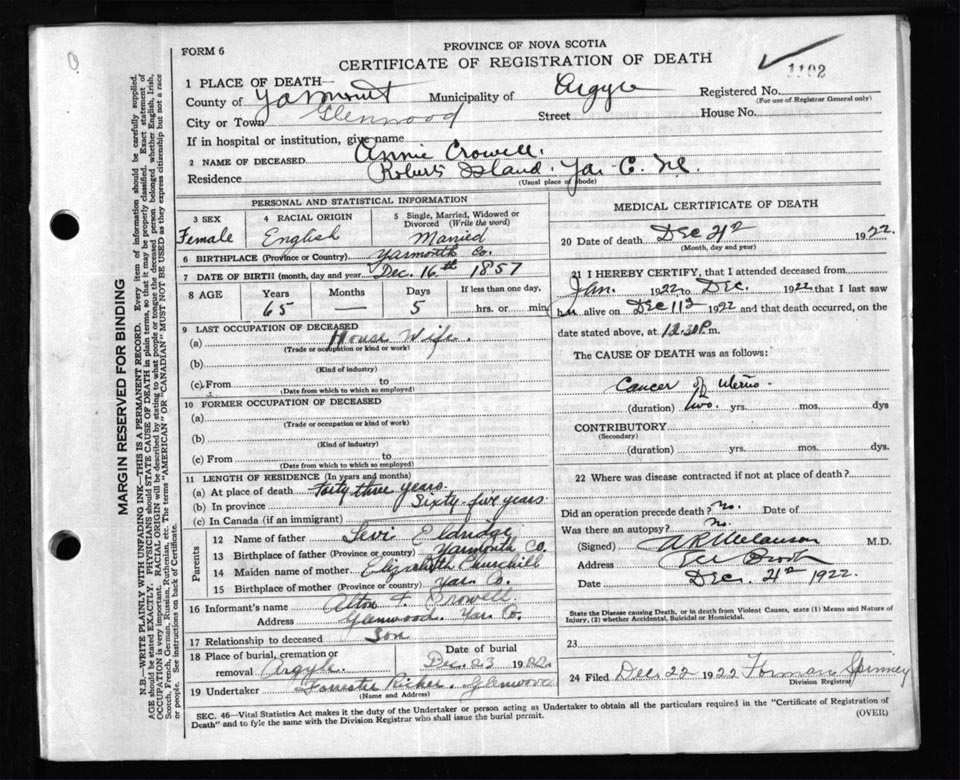 FORM 6
PROVINCE OF NOVA SCOTIA
CERTIFICATE OF REGISTRATION OF DEATH
1102
1 PLACE OF DEATH—
County of Yarmouth Municipality of Argyle Registered No.
(For use of Registrar General only)
City or Town Glenwood Street House No.
If in hospital or institution, give name
2 NAME OF DECEASED Annie Crowell.
Residence Roberts Island. Yar. C. N.S.
(Usual place of abode)
PERSONAL AND STATISTICAL INFORMATION
3 SEX
Female
4 RACIAL ORIGIN
English
5 Single, Married, Widowed or
Divorced (Write the word)
Married
6 BIRTHPLACE (Province or Country) Yarmouth Co.
7 DATE OF BIRTH (month, day and year) Dec. 16th 1857
8 AGE
Years
65
Months
—
Days
5
If less than one day,
hrs. or min
9 LAST OCCUPATION OF DECEASED
(a) House Wife.
(Trade or occupation or kind or work)
(b)
(Kind of industry)
(c) From to
(Date from which to which so employed)
10 FORMER OCCUPATION OF DECEASED
(a)
(Trade or occupation or kind of work)
(b)
(Kind of industry)
(c) From to
(Date from which to which so employed)
11 LENGTH OF RESIDENCE (In years and months)
(a) At place of death Forty three years.
(b) In province Sixty-five years.
(c) In Canada (if an immigrant)
Parents
12 Name of father Levi Eldridge
13 Birthplace of father (Province or country) Yarmouth Co.
14 Maiden name of mother Elizabeth Churchill
15 Birthplace of mother (Province or country) Yar. Co.
16 Informant's name Alton F. Crowell.
Address Glenwood. Yar. Co.
17 Relationship to deceased Son
18 Place of burial, cremation or
removal Argyle.
Date of burial
Dec. 23 1922.
19 Undertaker Forrester Ricker. Glenwood
(Name and Address)
MEDICAL CERTIFICATE OF DEATH
20 Date of death Dec 21st 1922.
(Month, day and year)
21 I HEREBY CERTIFY, that I attended deceased from
Jan. 1922 to Dec. 1922 that I last saw
her alive on Dec 11th 1922 and that death occurred, on the
date stated above, at 12.30 P.m.
The CAUSE OF DEATH was as follows:
Cancer of uterus.
(duration) two. yrs. mos. dys
CONTRIBUTORY
(Secondary)
(duration) yrs. mos. dys.
22 Where was disease contracted if not at place of death?
Did an operation precede death? no. Date of
Was there an autopsy? no.
(Signed) M.D.
Address
Date Dec. 21st 1922.
State the Disease causing Death, or in death from Violent Causes, state (1) Means and Nature of
Injury, (2) whether Accidental, Suicidal or Homicidal.
23
24 Filed Dec 22 1922 Forman Spinney
Division Registrar
SEC. 46—Vital Statistics Act makes it the duty of the Undertaker or person acting as Undertaker to obtain all the particulars required in the "Certificate of Registration of
Death" and to fyle the same with the Division Registrar who shall issue the burial permit.
(OVER)
MARGIN RESERVED FOR BINDING
N.B.—WRITE PLAINLY WITH UNFADING INK—THIS IS A PERMANENT RECORD. Every item of information should be carefully supplied.
AGE should be stated EXACTLY. PHYSICIANS should STATE CAUSE OF DEATH in plain terms, so that it may be properly classified. Exact statement of
OCCUPATION is very important. RACIAL ORIGIN will be described by stating to what people or tongue the deceased person belonged whether English, Irish,
Scotch, French, German, Russian, Ruthenian, etc. The terms "AMERICAN" or "CANADIAN" MUST NOT BE USED as they express citizenship but not a race
or people. See instructions on back of Certificate.